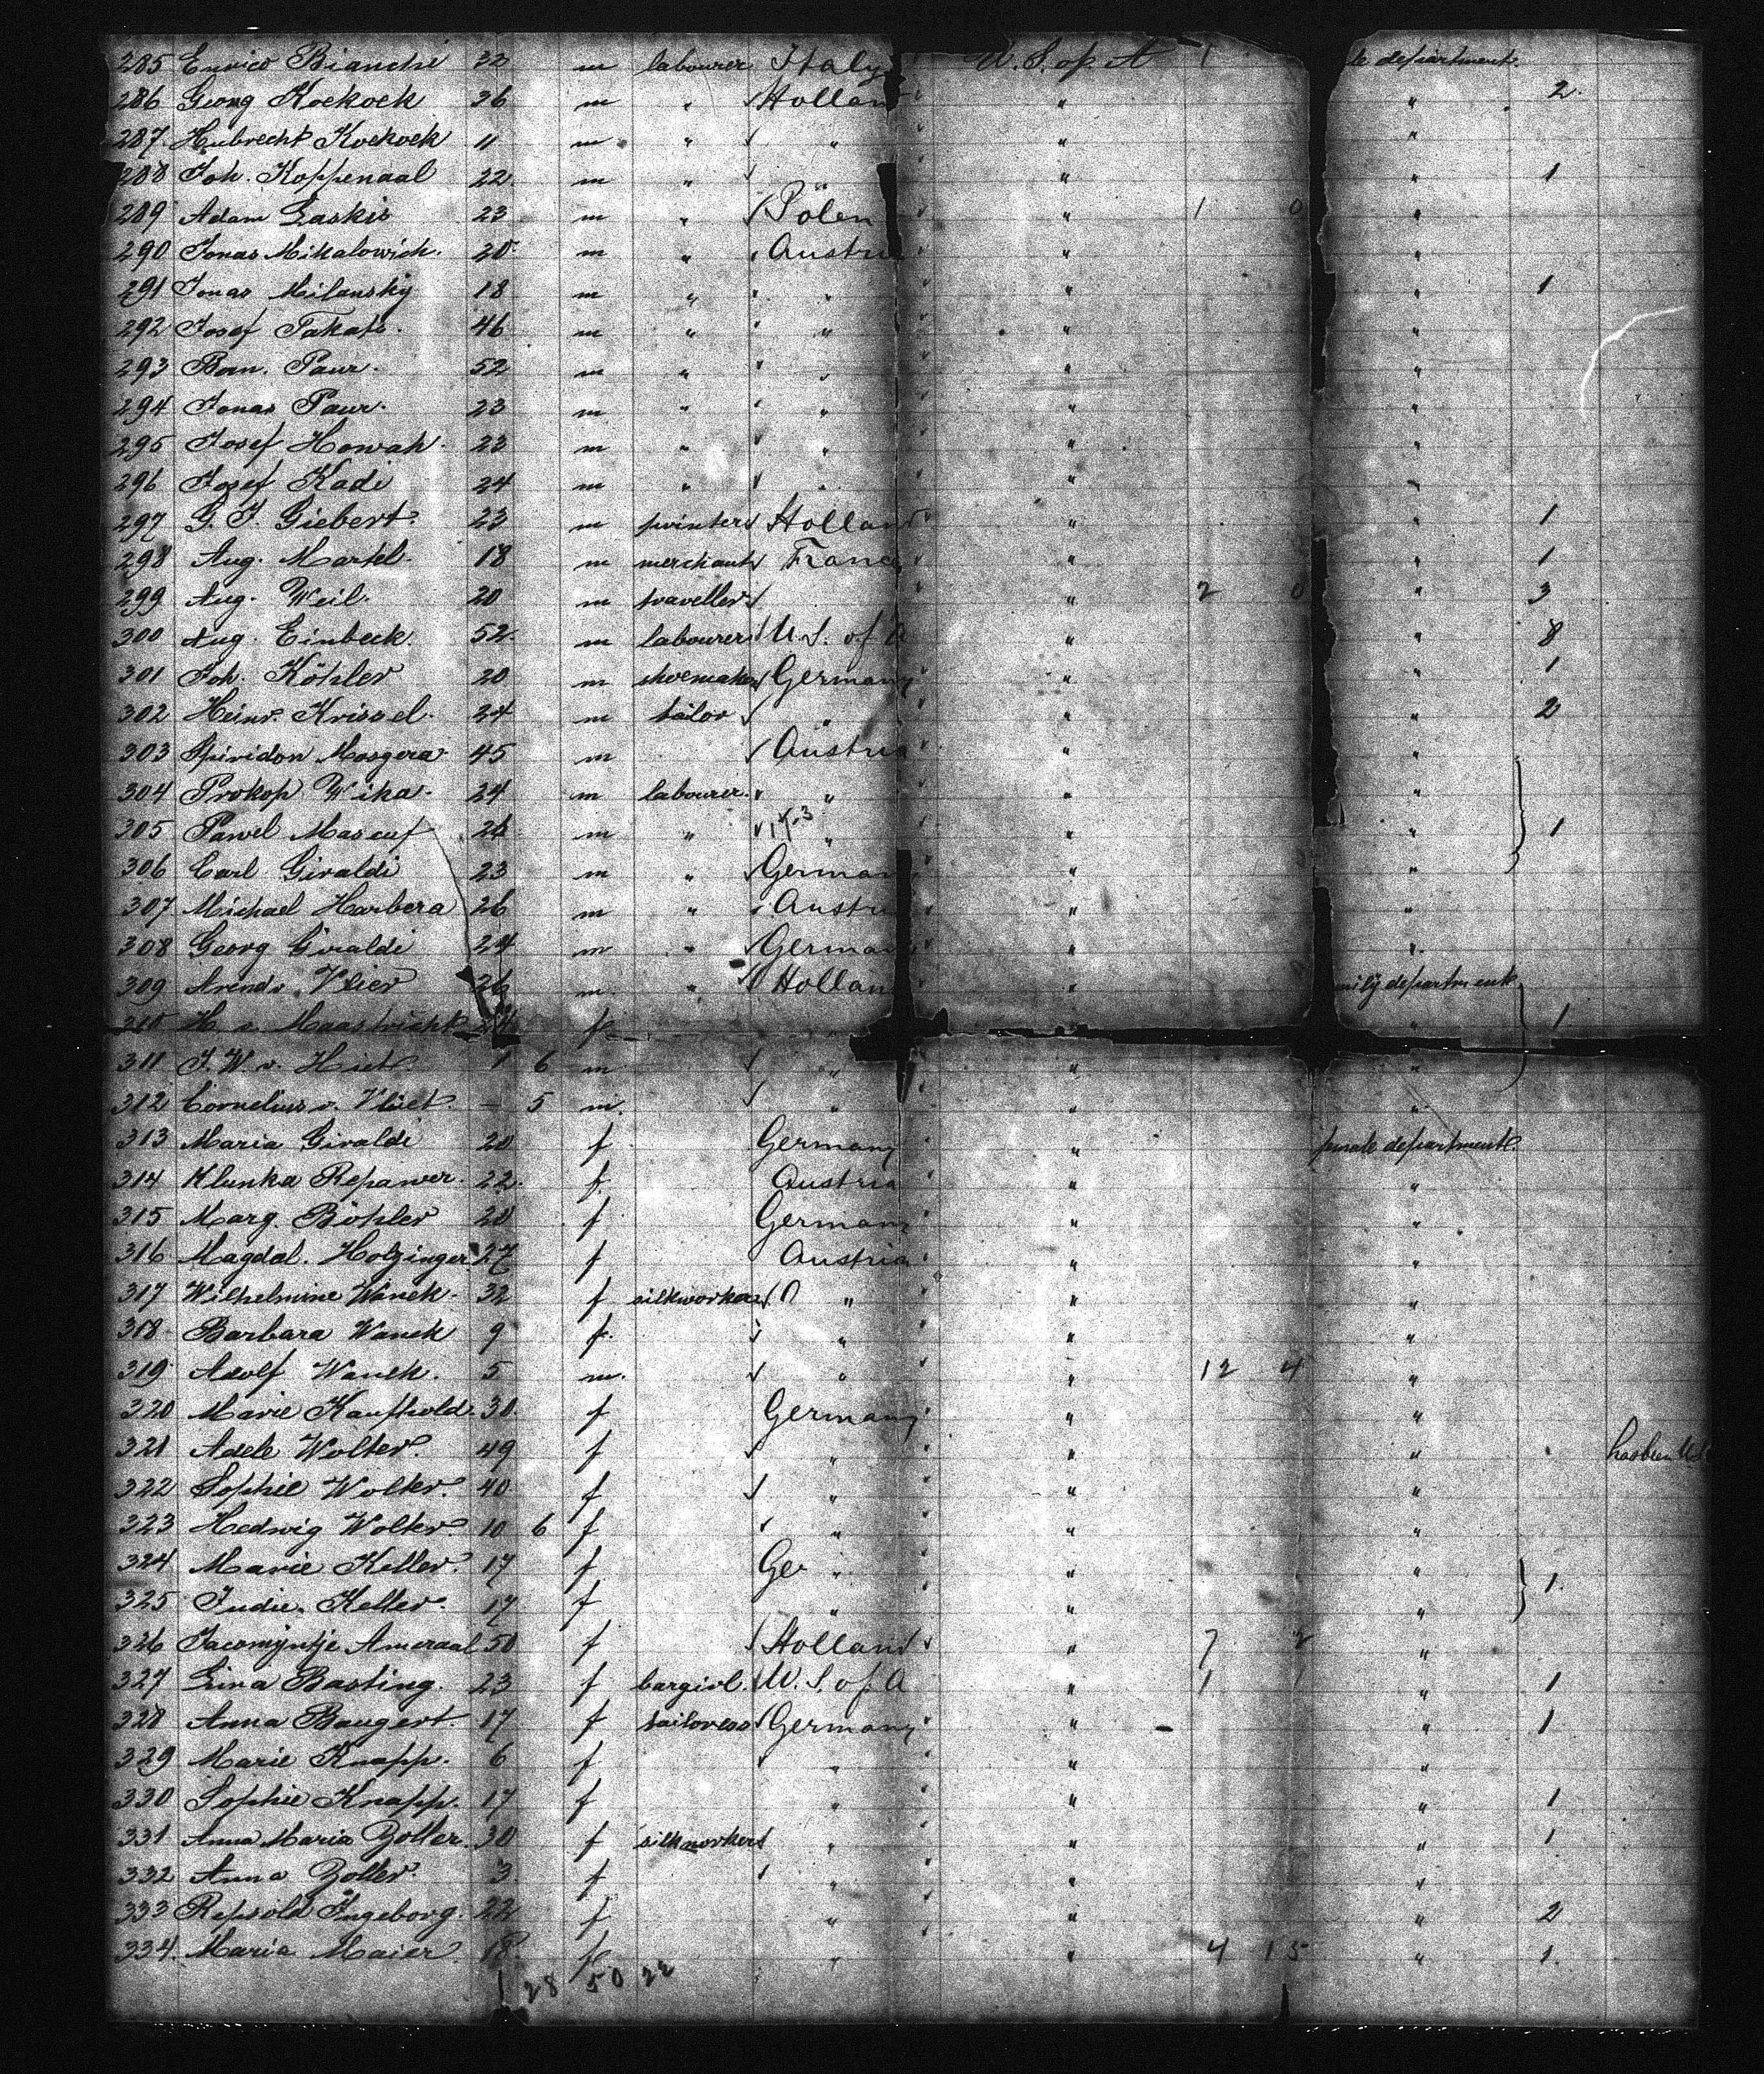 285 Enrico Bianchi 32 m labourer Italy U. S. of A 1 le department.
286 Georg Koekoek 36 m " Hollan " " 2.
287 Hubrecht Koekoek 11 m " " " "
288 Joh. Koppenaal 22 m " " " 1
289 Adam Laskis 23 m " Polen " 1 0 "
290 Jonas Mikalowich. 20 m " Austri " "
291 Jonas Milansky 18 m " " " " 1
292 Josef Takats. 46 m " " " "
293 Paur. 52 m " " " "
294 Jonas Paur. 23 m " " " "
295 Josef Howah. 23 m " " " "
296 Josef Kadi 24 m " " " "
297 G. J. Giebert. 23 m printer Holland " " 1
298 Aug. Martel. 18 m merchant Franc " " 1
299 Aug. Weil. 20 m traveller " 2 0 " 3
300 Aug. Einbeck. 52. m labourer U. S. of A " " 8
301 Joh. Köhler 20 m shoemaker Germany " " 1
302 Heinr. Krissel. 24 m tailor " " " 2
303 Spiridon Mosgera 45 m Austria " "
304 Prokop Wika. 24 m labourer. " " "
305 Pawel Mascuf 26 m " " " " 1
306 Carl Giraldi 23 m " German " "
307 Michael Harbera 26 m " Austri " "
308 Georg Giraldi 24 m " German " "
309 Arend v. Vlier 26 m. " Hollan " mily department
310 H. v. Maastricht f " 1.
311 J. W. v. 1 6 m " " "
312 Cornelius v. Vliet. — 5 m. " " "
313 Maria Giraldi 20 f Germany " female department.
314 Klunka Repawer. 22. f Austria " "
315 Marg. Böhler 20 f German " "
316 Magdal. Holzinger 27 f Austria " "
317 Wilhelmine Wanek. 32 f silkworker " " "
318 Barbara Wanek 9 f. " " "
319 Adolf Wanek. 5 m. " " 12 4 "
320 Marie Kaufhold. 30. f Germany " "
321 Adele Wolter. 49 f " " " has been
322 Sophie Wolter. 40 f " " "
323 Hedwig Wolter. 10 6 f " " "
324 Marie Keller. 17 f Ge " " " 1.
325 Keller. 17 f " " "
326 Jacomyntje Ameraal 50 f Holland " 7 2 "
327 Lina Basting. 23 f bargirl. U. S. of A " 1 1 " 1
328 Anna Baugert. 17 f tailoress Germany " " 1
329 Marie Knapp. 6 f " " "
330 Sophie Knapp. 17 f " " " 1
331 Anna Maria Zoller. 30 f silkworker " " " 1
332 Anna Zoller. 3 f " " "
333 Repsold Ingeborg. 22 f " " " 2
334. Maria Maier 18 f " " 4 15 " 1.
28 50 22